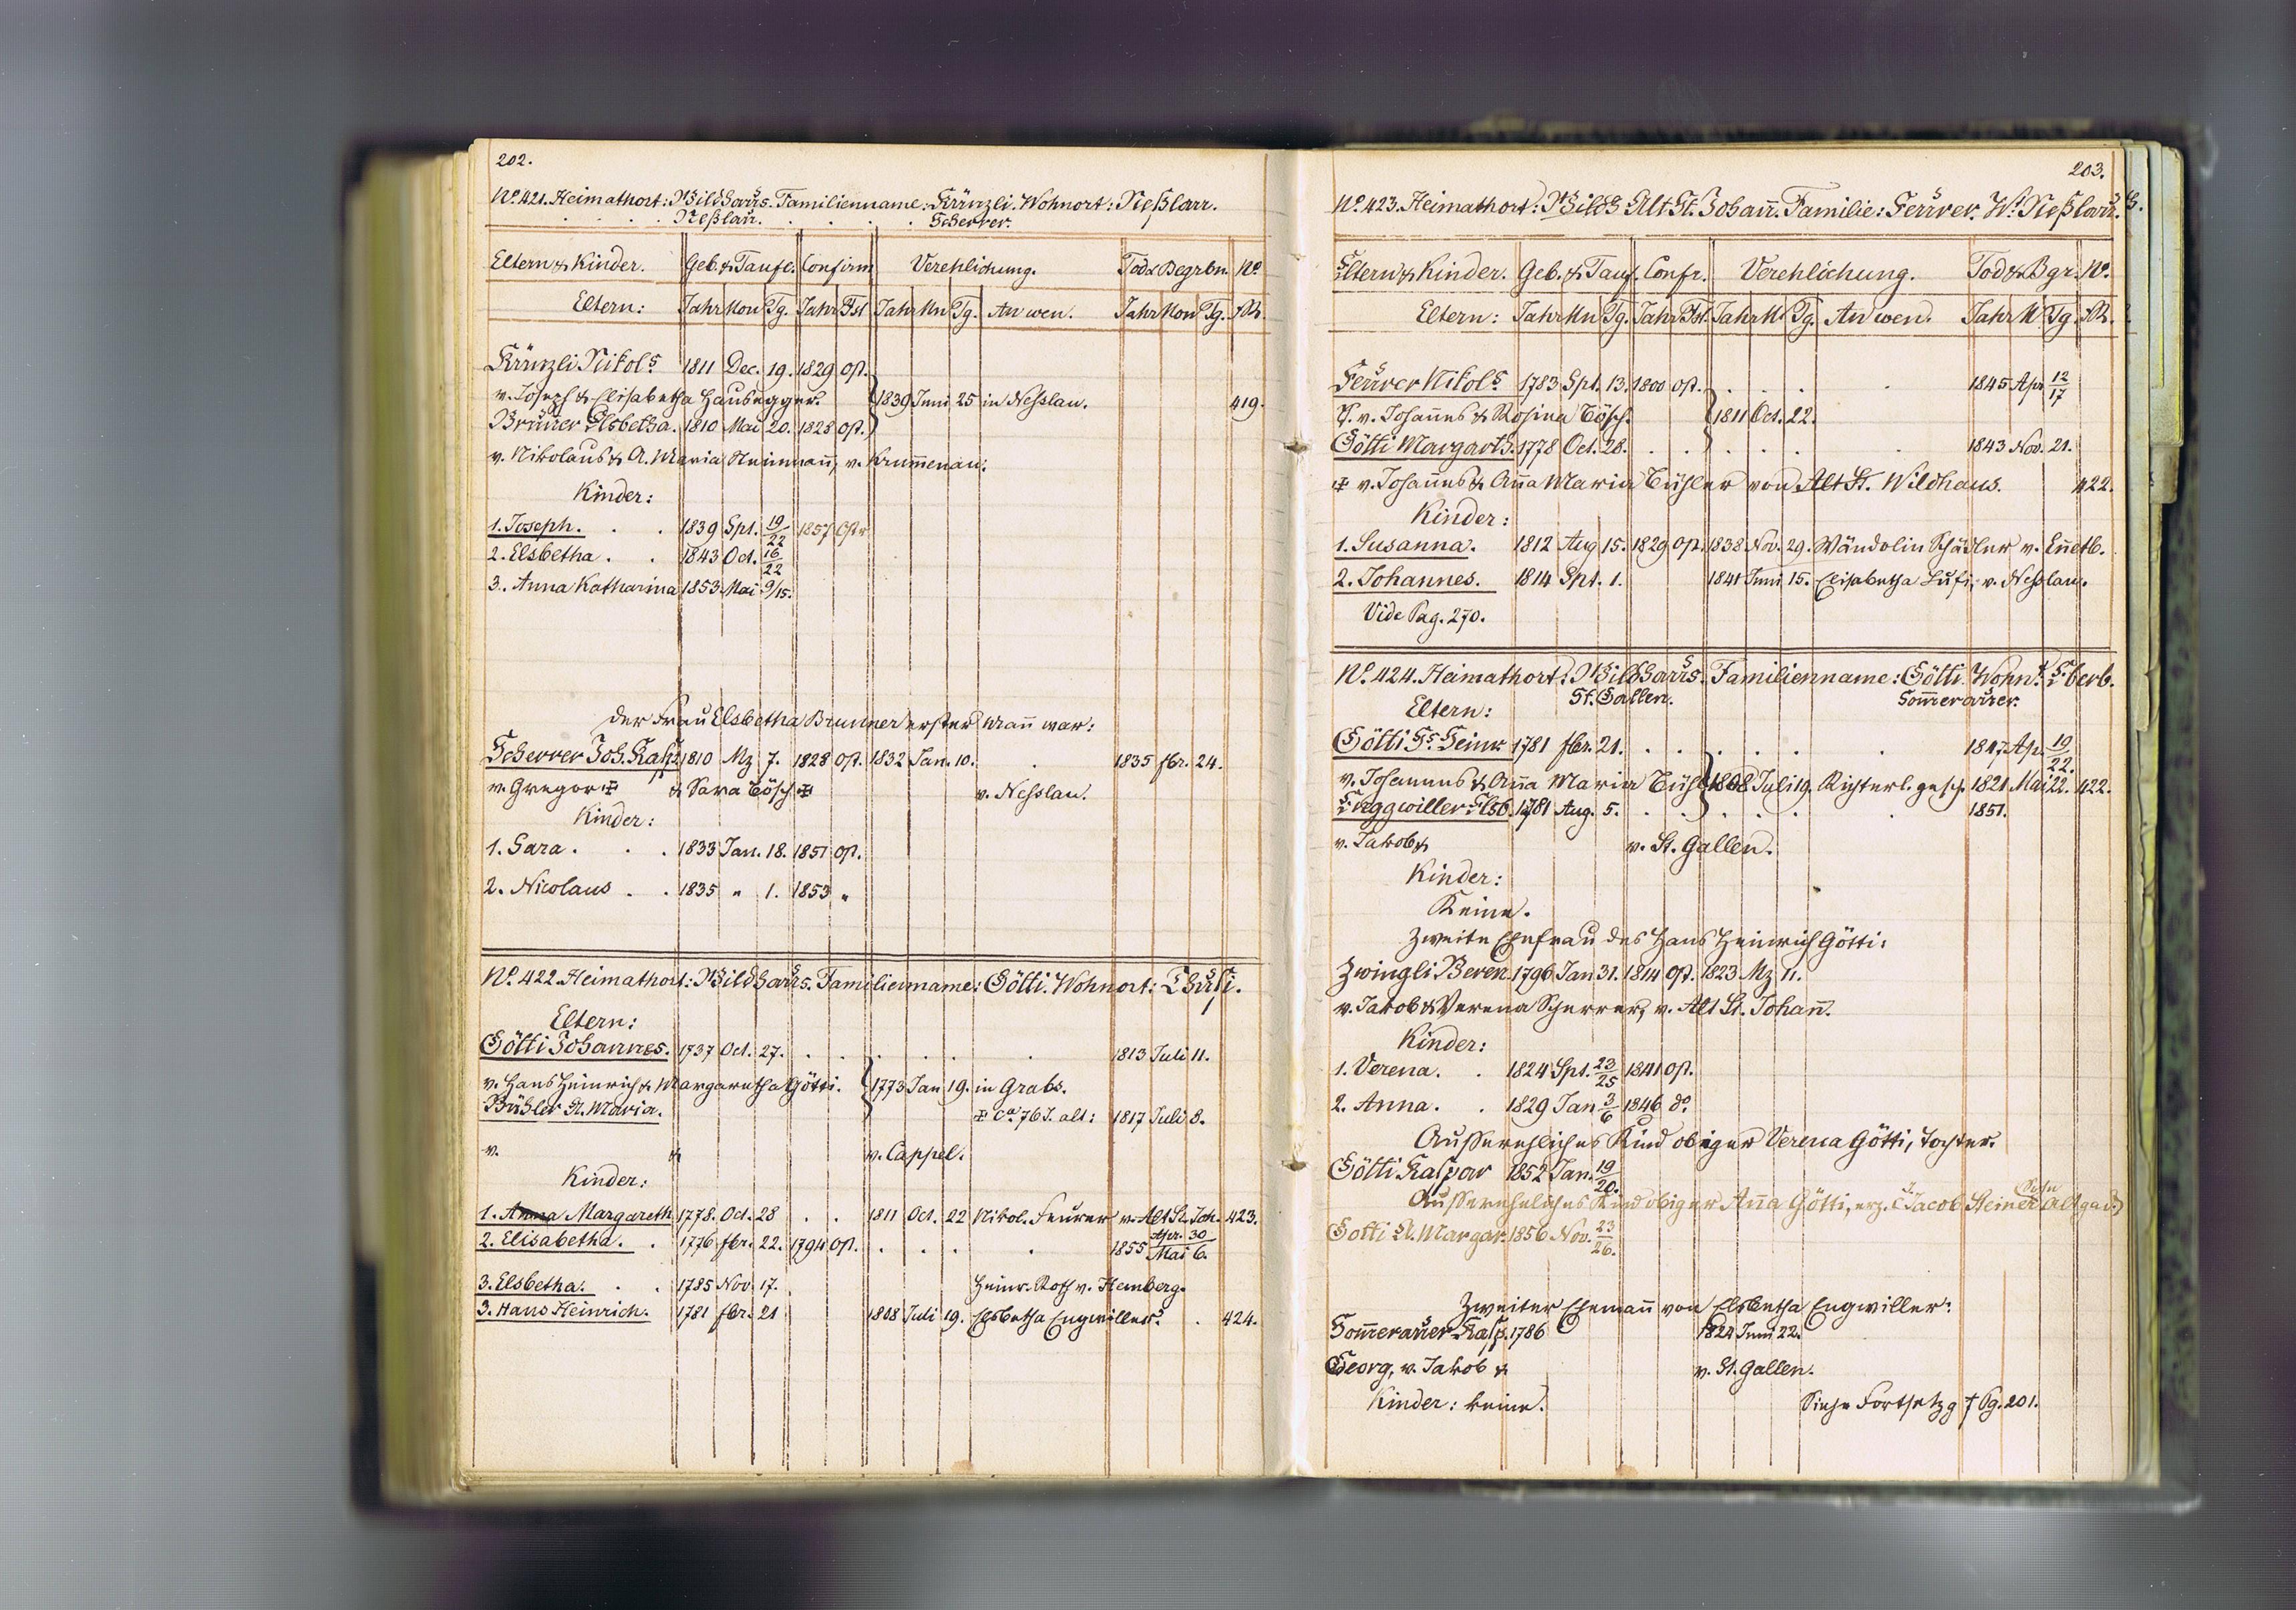 202.
No. 421. Heimathort: Wildhaus. Familienname: Künzli. Wohnort: Neßlau.
Neßlau. Scherrer.
Eltern & Kinder. Geb. & Taufe. Confirm Verehlichung. Tod & Begrbn. No.
Eltern: Jahr Mon Tg. Jahr Fst Jahr Mn Tg. An wen. Jahr Mon Tg.
Künzli Nikols 1811 Dec. 19. 1829 Ost.
v. Joseph & Elisabetha Hausegger. 1839 Juni 25 in Nesslau. 419.
Brunner Elsbetha. 1810 Mai 20. 1828 Ost.
v. Nikolaus & A. Maria, v. Krummenau.
Kinder:
1. Joseph. 1839 Spt. 19/22 1857 Ostr
2. Elsbetha. 1843 Oct. 16/22
3. Anna Katharina 1853 Mai 9/15.
Der Frau Elsbetha Brunner erster Mann war:
Scherrer Joh. 1810 Mz 7. 1828 Ost. 1832 Jan. 10. 1835 fbr. 24.
v. Gregor & Sara Bösch v. Nesslau.
Kinder:
1. Sara. 1833 Jan. 18. 1851 Ost.
2. Nicolaus. 1835 " 1. 1853 "
No. 422. Heimathort: Wildhaus. Familienname: Götti. Wohnort:
Eltern:
Götti Johannes. 1737 Oct. 27. 1813 Juli 11.
v. Hans Heinrich & Margaretha Götti. 1773 Jan 19. in Grabs.
Bühler A. Maria. ca 76 J. alt: 1817 Juli 8.
v. & v. Cappel.
Kinder:
1. Anna Margareth 1778. Oct. 28 1811 Oct. 22 Nikol. Feurer v. Alt St. Joh. 423.
2. Elisabetha. 1776 fbr. 22. 1794 Ost. 1855 Apr. 30 / Mai 6.
3. Elsbetha. 1785 Nov. 17. Heinr. Roth v. Hemberg.
3. Hans Heinrich. 1781 fbr. 21 1808 Juli 19. Elsbetha Engwiller. 424.
203.
No. 423. Heimathort: Wildh Alt St. Johann. Familie: Feurer. Wt. Neßlau.
Eltern & Kinder. Geb. & Tauf. Confr. Verehlichung. Tod & Bgr. No.
Eltern: Jahr Mn Tg. Jahr Fst. Jahr M. Tg. An wen. Jahr M Tg.
Feurer Nikols 1783 Spt. 13. 1800 Ost. 1845 Apr 12/17
v. Johannes & Rosina Bösch. 1811 Oct. 22.
Götti Margarth. 1778 Oct. 28. 1843 Nov. 21.
v. Johannes & Anna Maria Bühler von Alt St. Wildhaus. 422.
Kinder:
1. Susanna. 1812 Aug 15. 1829 Ost. 1838 Nov. 29. Wändolin Schädler v. Ennetb.
2. Johannes. 1814 Spt. 1. 1841 Juni 15. Elisabetha v. Nesslau.
Vide Pag. 270.
No. 424. Heimathort: Wildhaus. Familienname: Götti. Wohnt. Eberb.
St. Gallen. Sommerauer.
Eltern:
Götti Hs. Heinr 1781 fbr. 21. 1847 Ap. 19/22.
v. Johannes & Anna Maria Bühler 1808 Juli 19. Richterl. gesch. 1821 Mai 22. 422.
Enggwiller Elsb. 1781 Aug. 5. 1851.
v. Jakob & v. St. Gallen.
Kinder:
Keine.
Zweite Ehefrau des Hans Heinrich Götti:
Zwingli Veren. 1796 Jan 31. 1814 Ost. 1823 Mz 11.
v. Jakob & Verena Scherrer, v. Alt St. Johann.
Kinder:
1. Verena. 1824 Spt. 23/25 1841 Ost.
2. Anna. 1829 Jan 3/6 1846 do.
Ausserehliches Kind obiger Verena Götti, Tochter.
Götti Kaspar 1852 Jan. 19/20.
Ausserehliches Kind obiger Anna Götti, erz. Jacob Steiner
Götti A. Margar. 1856 Nov. 23/26.
Zweiter Ehemann von Elsbetha Engwiller:
Sommerauer Kasp. 1786 1824 Juni 22.
Georg, v. Jakob & v. St. Gallen.
Kinder: keine. Siehe Fortsetzg Pg. 201.